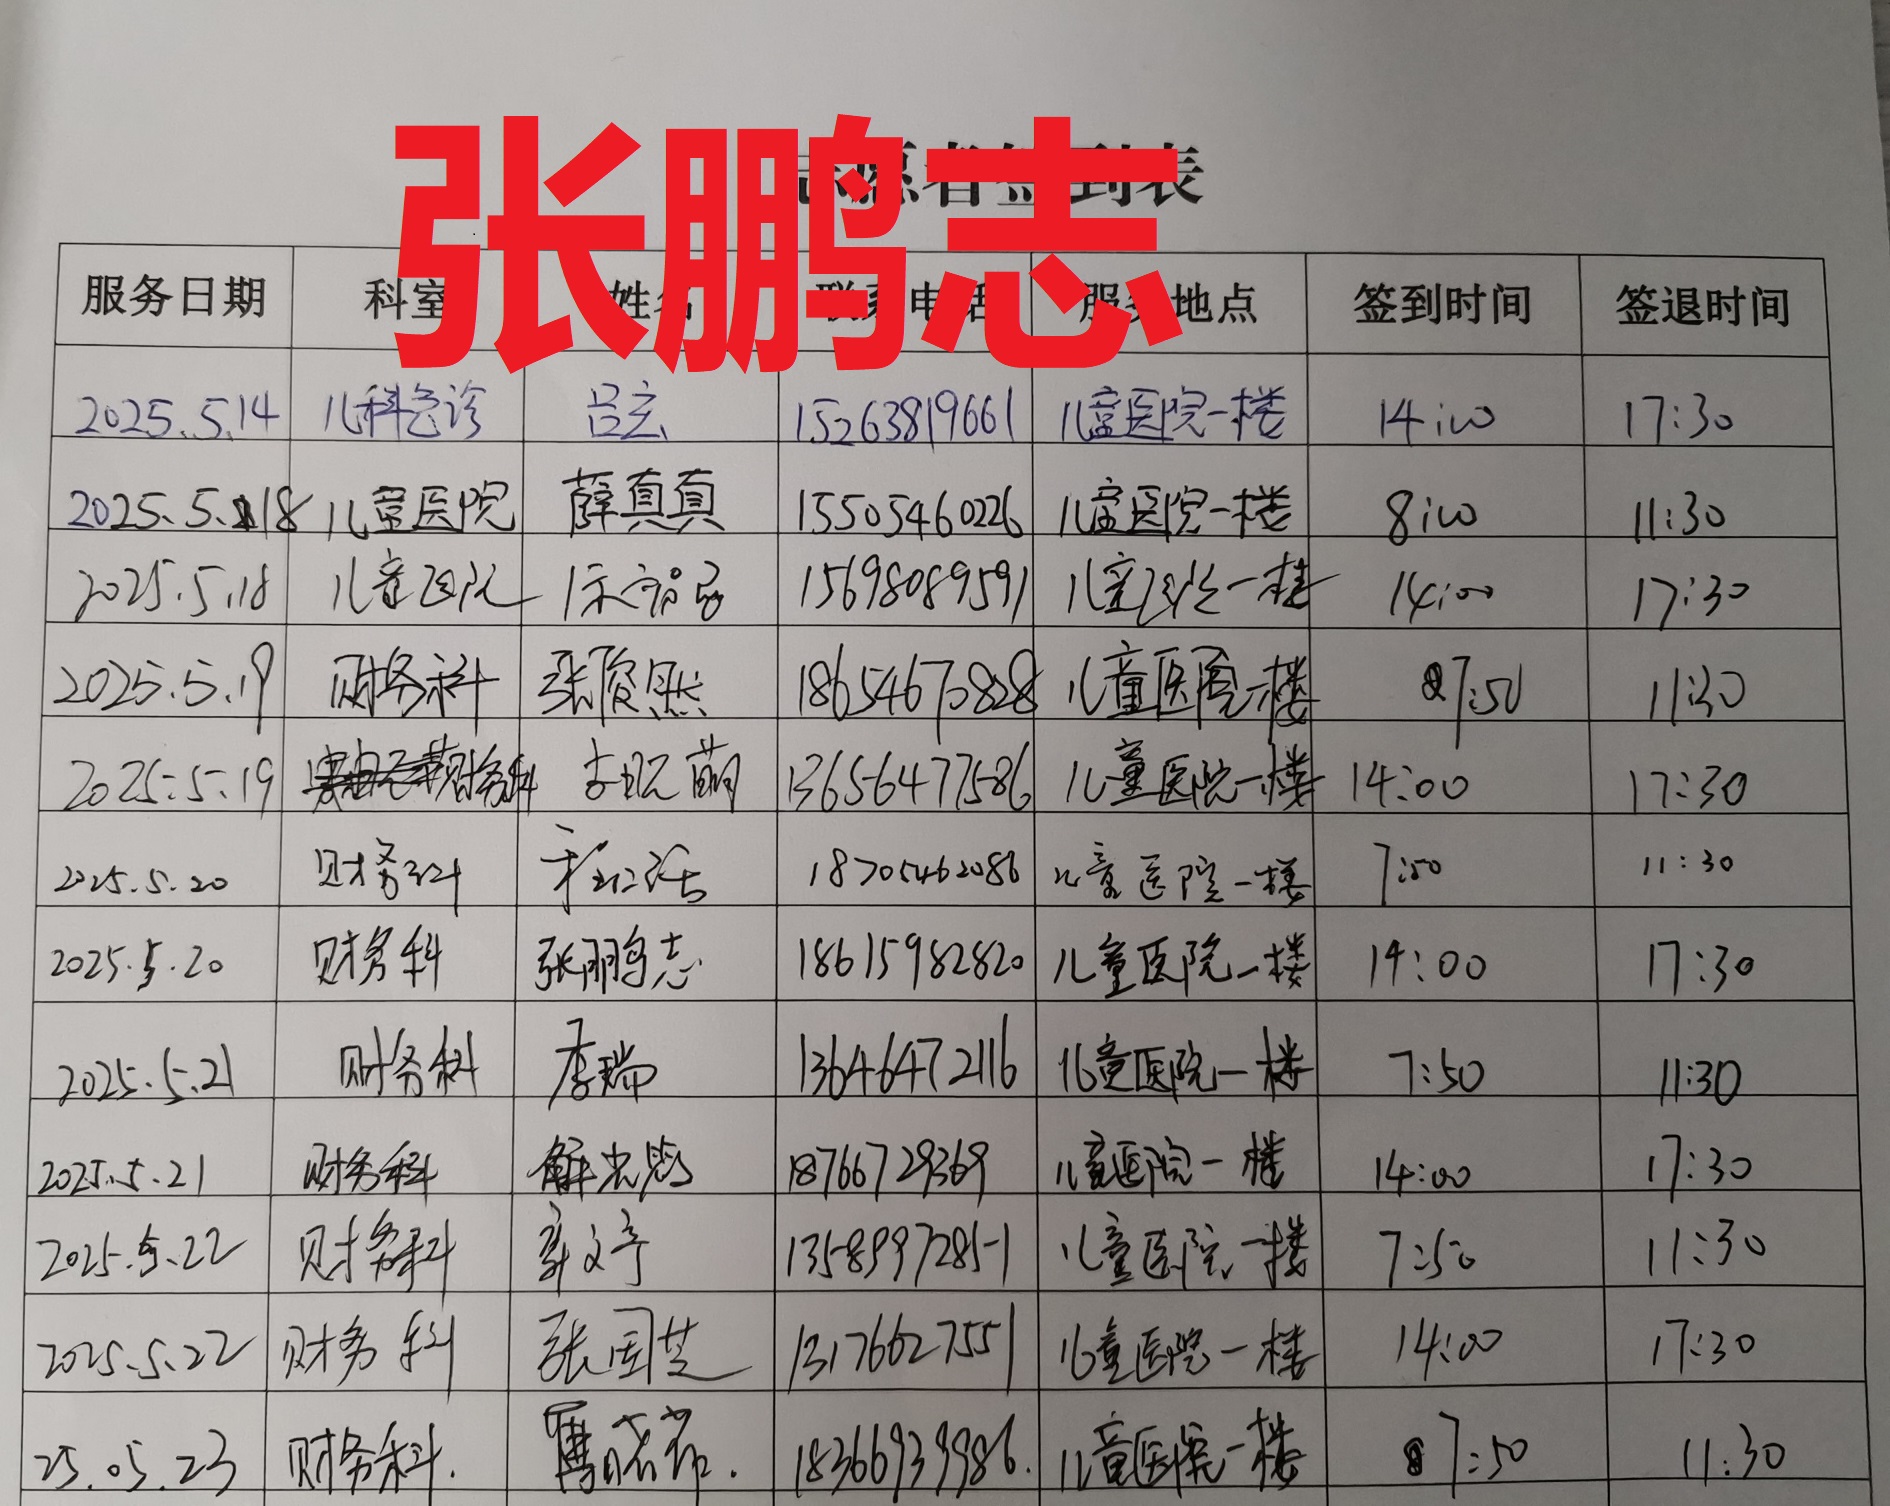 张鹏志
志愿者签到表
服务日期 科室 姓名 联系电话 服务地点 签到时间 签退时间
2025.5.14 儿科急诊 吕宏 15263819661 儿童医院一楼 14:00 17:30
2025.5.18 儿童医院 薛真真 15505460226 儿童医院一楼 8:00 11:30
2025.5.18 儿童医院 15698089591 儿童医院一楼 14:00 17:30
2025.5.19 财务科 张俊熙 18654670828 儿童医院一楼 7:50 11:30
2025.5.19 财务科 萌 13656477586 儿童医院一楼 14:00 17:30
2025.5.20 财务科 18705462086 儿童医院一楼 7:50 11:30
2025.5.20 财务科 张鹏志 18615982820 儿童医院一楼 14:00 17:30
2025.5.21 财务科 李瑞 13646472116 儿童医院一楼 7:50 11:30
2025.5.21 财务科 解 18766729369 儿童医院一楼 14:00 17:30
2025.5.22 财务科 文 13589972851 儿童医院一楼 7:50 11:30
2025.5.22 财务科 张国芝 13176627551 儿童医院一楼 14:00 17:30
25.05.23 财务科. 18366939986. 儿童医院一楼 7:50 11:30